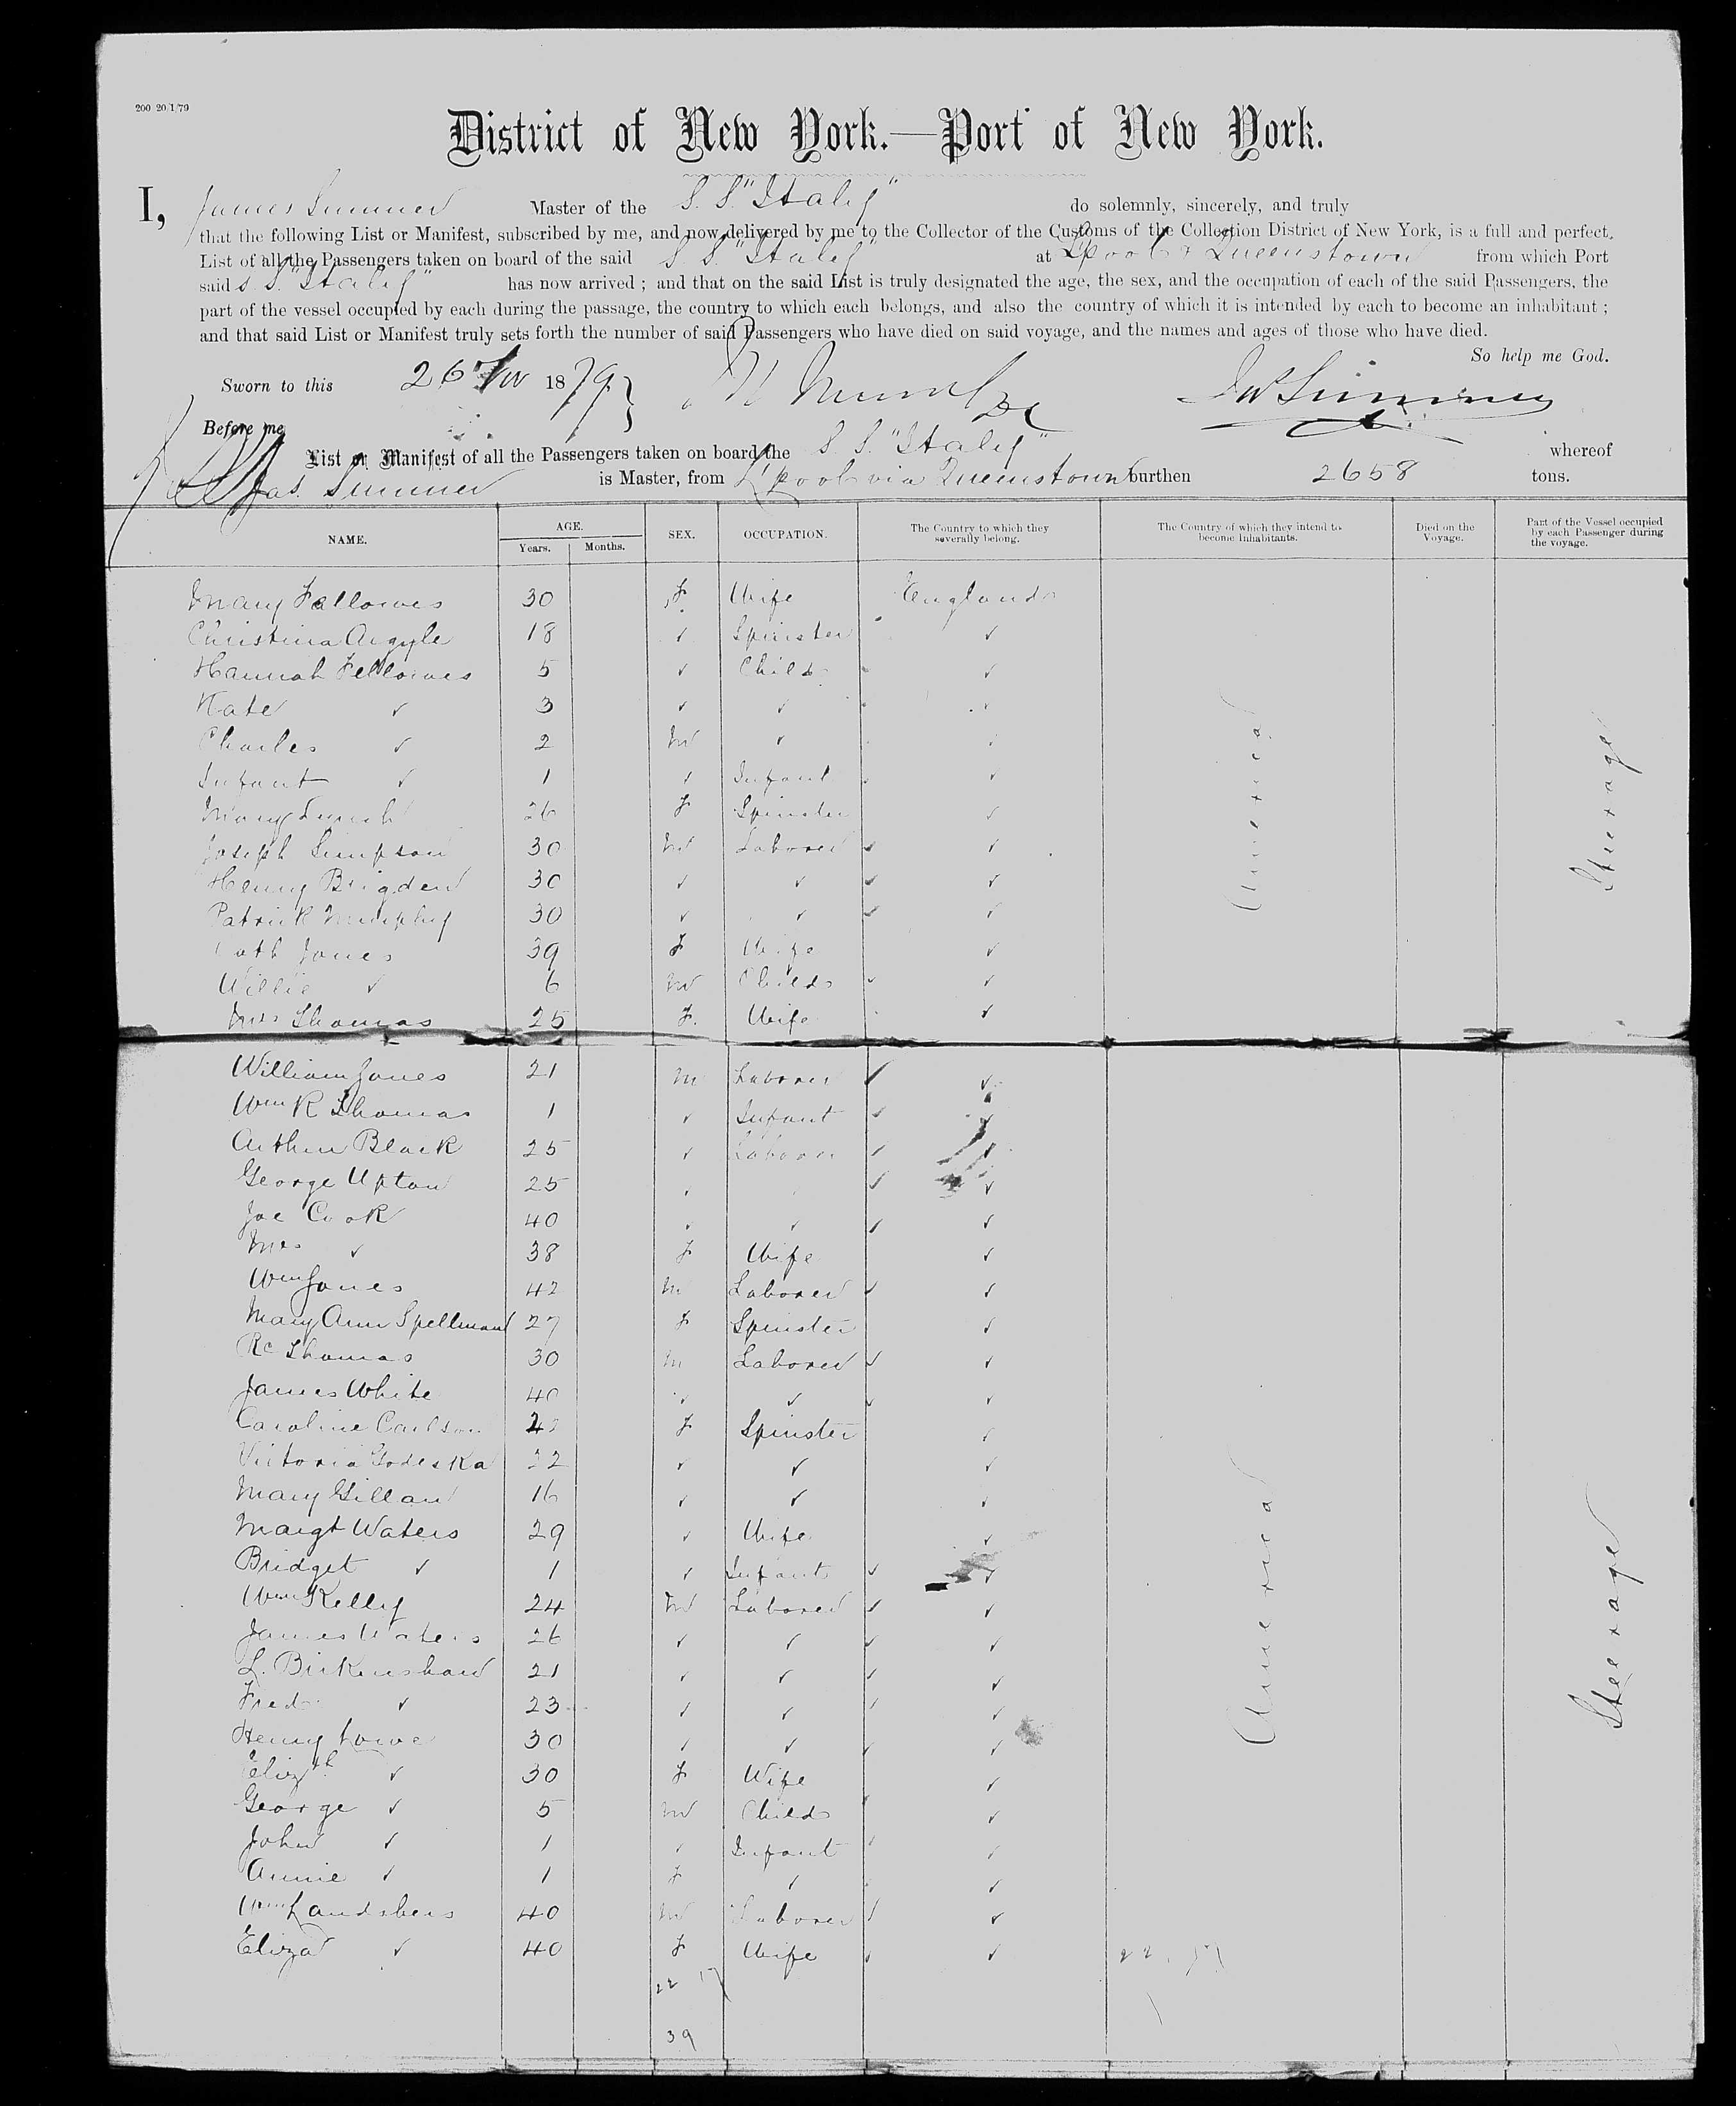 200 20/1/79
District of New York.—Port of New York.
I, James Sumner Master of the S. S. "Italy" do solemnly, sincerely, and truly
that the following List or Manifest, subscribed by me, and now delivered by me to the Collector of the Customs of the Collection District of New York, is a full and perfect
List of all the Passengers taken on board of the said S. S. "Italy" at L'pool & Queenstown from which Port
said S. S. "Italy" has now arrived ; and that on the said List is truly designated the age, the sex, and the occupation of each of the said Passengers, the
part of the vessel occupied by each during the passage, the country to which each belongs, and also the country of which it is intended by each to become an inhabitant ;
and that said List or Manifest truly sets forth the number of said Passengers who have died on said voyage, and the names and ages of those who have died.
So help me God.
Sworn to this 26 Nov 1879 Jas Sumner
Before me
List or Manifest of all the Passengers taken on board the S. S. "Italy" whereof
Jas. Sumner is Master, from L'pool via Queenstown burthen 2658 tons.
NAME. AGE. Years. Months. SEX. OCCUPATION. The Country to which they severally belong. The Country of which they intend to become Inhabitants. Died on the Voyage. Part of the Vessel occupied by each Passenger during the voyage.
Mary Fallowes 30 F Wife England
Christina Argyle 18 ✓ Spinster ✓
Hannah Fellowes 5 ✓ Child ✓
Kate ✓ 3 ✓ ✓ ✓
Charles ✓ 2 M ✓ ✓
Infant ✓ 1 ✓ Infant ✓
Mary Lynch 26 F Spinster ✓
Joseph Simpson 30 M Laborer ✓ ✓
Henry Brigden 30 ✓ ✓ ✓ ✓
Patrick Murphy 30 ✓ ✓ ✓ ✓
Cath Jones 39 F Wife ✓
Willie ✓ 6 M Child ✓ ✓
Mrs Thomas 25 F. Wife ✓
America
Steerage
William Jones 21 M Laborer ✓ ✓
Wm R Thomas 1 ✓ Infant ✓ ✓
Arthur Black 25 ✓ Laborer ✓ ✓
George Upton 25 ✓ ✓ ✓
Joe Cook 40 ✓ ✓ ✓ ✓
Mrs ✓ 38 F Wife ✓
Wm Jones 42 M Laborer ✓ ✓
Mary Ann Spellman 27 F Spinster ✓
Rc Thomas 30 M Laborer ✓ ✓
James White 40 ✓ ✓ ✓ ✓
Caroline Carlson F Spinster ✓
Victoria Godeska 22 ✓ ✓ ✓
Mary Gillan 16 ✓ ✓ ✓
Margt Waters 29 ✓ Wife ✓
Bridget ✓ 1 ✓ Infant ✓ ✓
Wm Kelly 24 M Laborer ✓ ✓
James Waters 26 ✓ ✓ ✓ ✓
L. Birkenshaw 21 ✓ ✓ ✓ ✓
Fred ✓ 23 ✓ ✓ ✓ ✓
Henry Lowe 30 ✓ ✓ ✓ ✓
Elizth ✓ 30 F Wife ✓
George ✓ 5 M Child ✓
John ✓ 1 ✓ Infant ✓ ✓
Annie ✓ 1 F ✓ ✓
Wm Landsbers 40 M Laborer ✓ ✓
Eliza ✓ 40 F Wife ✓ ✓ 22 . 17
America
Steerage
22 17
39